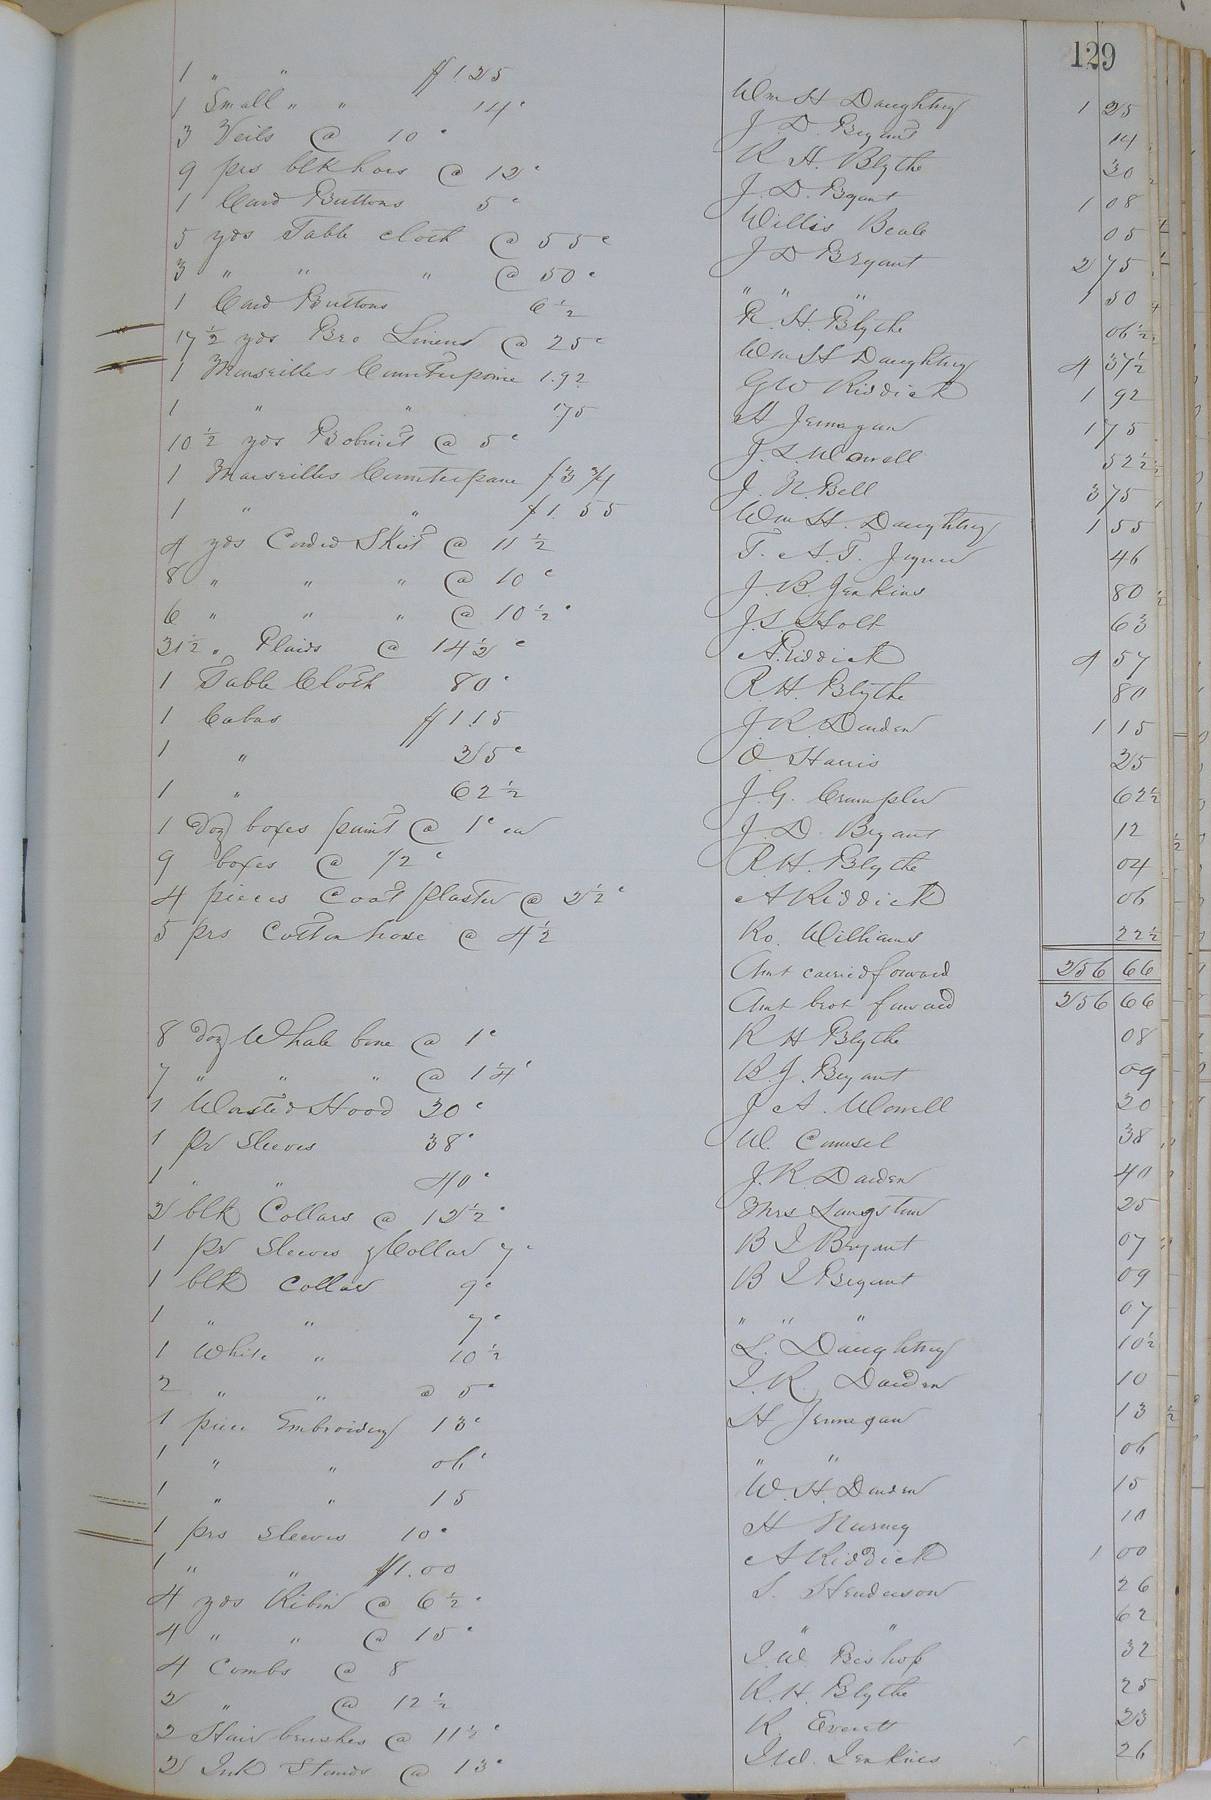 129
1 " " $1.25 Wm H Daughtry 1 25
1 Small " " 14c J. D. Bryant 14
3 Veils @ 10c R. H. Blythe 30
9 prs blk hose @ 12c J. D. Bryant 1 08
1 Card Buttons 5c Willis Beale 05
5 yds Table cloth @ 55c J D Bryant 2 75
3 " " " @ 50c " " " 1 50
1 Card Buttons 6½ R. H. Blythe 06½
17½ yds Bro Linend @ 25c Wm H Daughtry 4 37½
1 Marseilles Counterpaine 1.92 G W Riddick 1 92
1 " " 1.75 H Jernagan 1 75
10½ yds Bobinet @ 5c J. S. Worrell 52½
1 Marseilles Counterpane $3 3/4 J. N. Bell 3 75
1 " " $1.55 Wm H. Daughtry 1 55
4 yds Corded Skirt @ 11½ T. A. T. Joyner 46
8 " " " @ 10c J. B. Jenkins 80
6 " " " @ 10½c J. S. Holt 63
31½ " Plaids @ 14½c A. Riddick 4 57
1 Table Cloth 80c R H. Blythe 80
1 Cabas $1.15 J. R. Darden 1 15
1 " 25c O. Harris 25
1 " 62½ J. G. Crumpler 62½
1 doz boxes paint @ 1c ea J. D. Bryant 12
9 boxes @ 1/2c R. H. Blythe 04
4 pieces Coat plaster @ 2½c A Riddick 06
5 prs Cotton hose @ 4½ Ro. Williams 22½
Amt carried forward 256 66
Amt brot forward 256 66
8 doz Whale bone @ 1c R H Blythe 08
7 " " " @ 1¼c B. J. Bryant 09
1 Worsted Hood 30c J A. Worrell 30
1 pr Sleeves 38c W. Council 38
1 " " 40c J. R. Darden 40
2 blk Collars @ 12½c Mrs Langston 25
1 pr Sleeves & Collar 7c B J Bryant 07
1 blk Collar 9c B J Bryant 09
1 " " 7c " " " 07
1 White " 10½ S. Daughtry 10½
2 " " @ 5c J. R. Darden 10
1 piece Embroidery 13c H Jernegan 13
1 " " 06c " " 06
1 " " 15 W. H. Darden 15
1 prs Sleeves 10c H Nurney 10
1 " " $1.00 A Riddick 1 00
4 yds Ribin @ 6½c S. Henderson 26
4 " " @ 15c " " 62
4 Combs @ 8 J. W. Bishop 32
2 " @ 12½ R. H. Blythe 25
2 Hair brushes @ 11½c R. Everett 23
2 Ink Stands @ 13c J. W. Jenkins 26